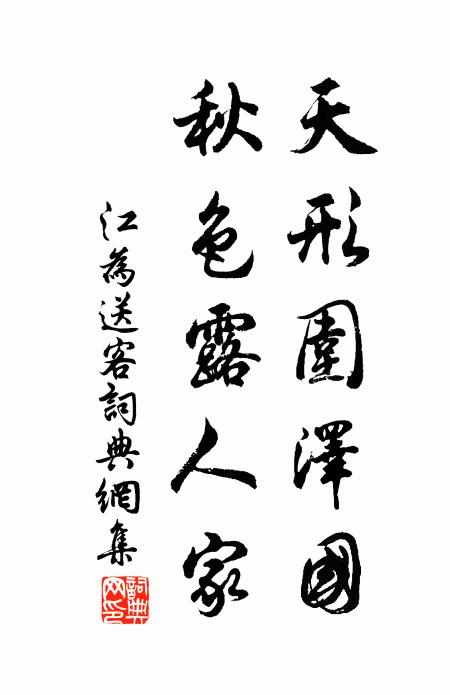 天形圍澤國
秋色露人家
江為送客詞典網集
詞典网印